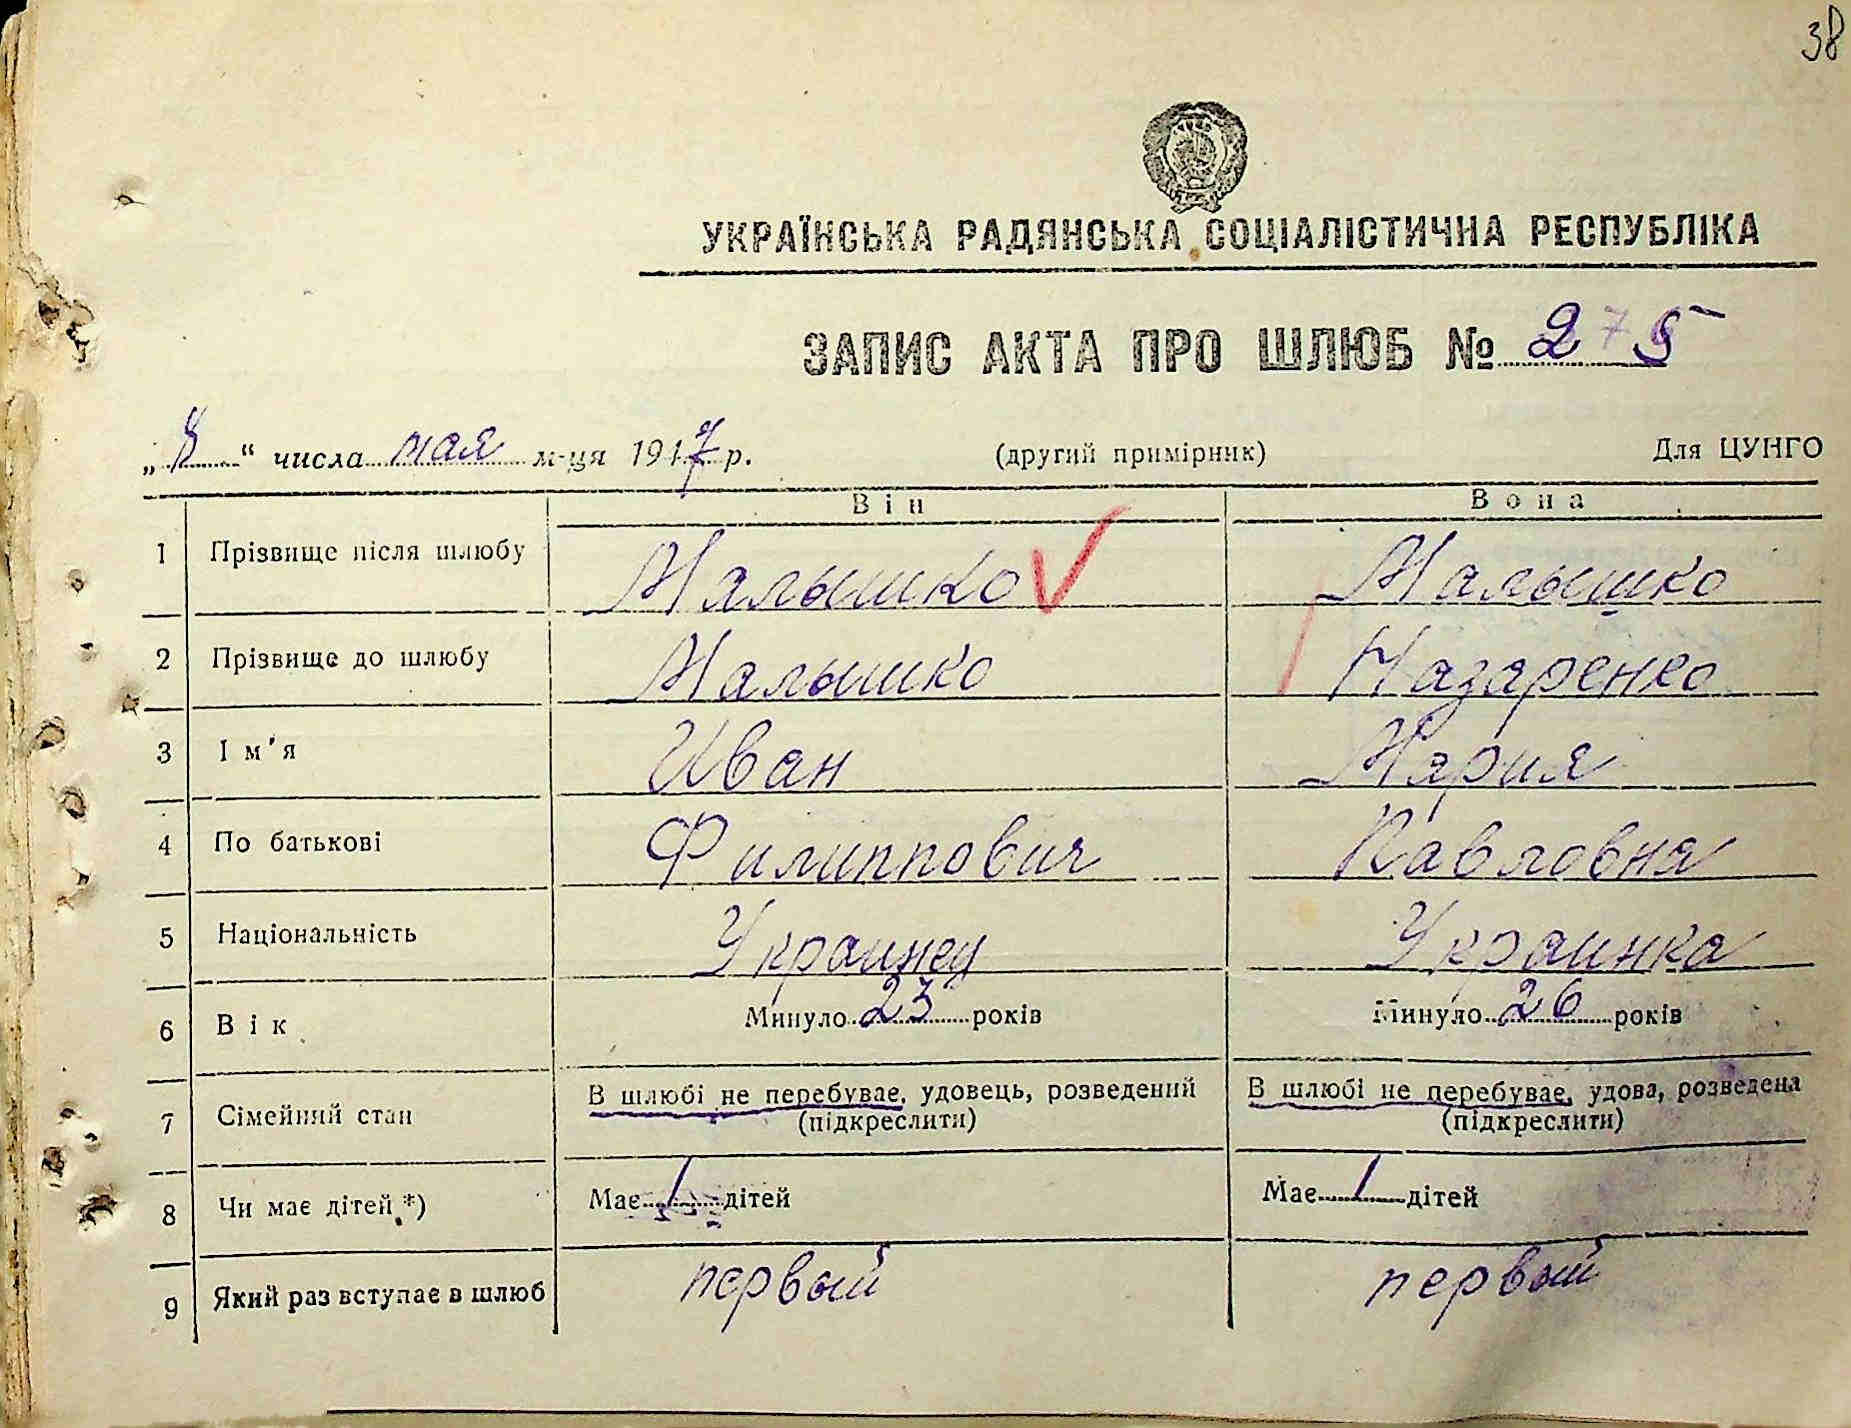 38
УКРАЇНСЬКА РАДЯНСЬКА СОЦІАЛІСТИЧНА РЕСПУБЛІКА
ЗАПИС АКТА ПРО ШЛЮБ № 275
„8“ числа мая м-ця 1947 р. (другий примірник) Для ЦУНГО
Він Вона
1 Прізвище після шлюбу Малышко Малышко
2 Прізвище до шлюбу Малышко Назаренко
3 Ім'я Иван Мария
4 По батькові Филиппович Павловна
5 Національність Украинец Украинка
6 Вік Минуло 23 років Минуло 26 років
7 Сімейний стан В шлюбі не перебуває, удовець, розведений В шлюбі не перебуває, удова, розведена
(підкреслити) (підкреслити)
8 Чи має дітей *) Має 1 дітей Має 1 дітей
9 Який раз вступає в шлюб первый первый